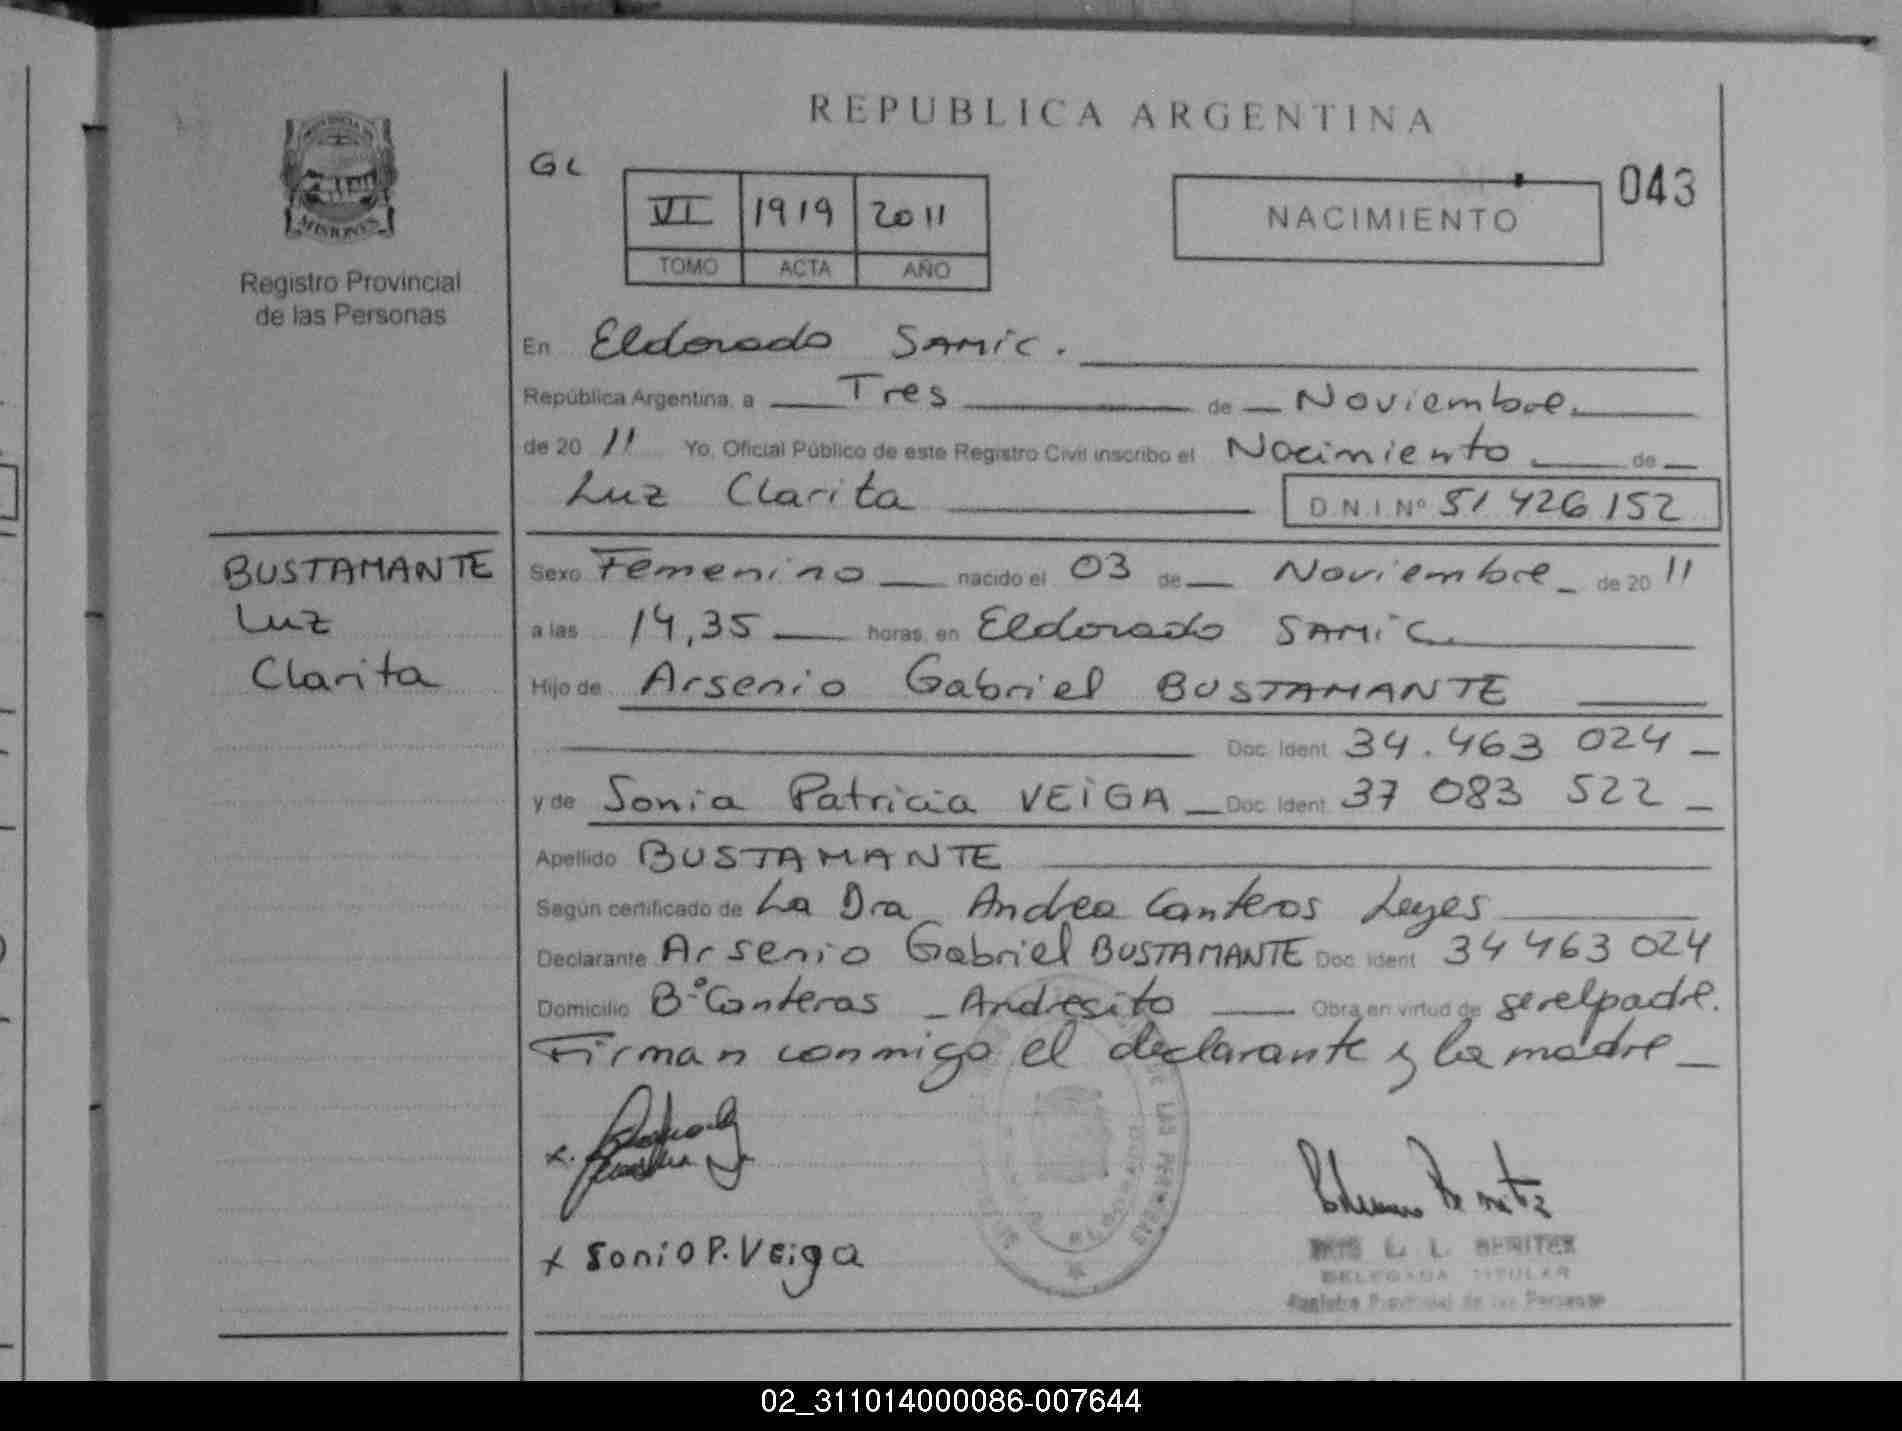 REPUBLICA ARGENTINA
PROVINCIA DE
MISIONES
Registro Provincial
de las Personas
GL
VI 1919 2011
TOMO ACTA AÑO
NACIMIENTO
043
En Eldorado SAMIC.
República Argentina, a Tres de Noviembre.
de 20 11 Yo, Oficial Público de este Registro Civil inscribo el Nacimiento de
Luz Clarita D.N.I. Nº 51 426 152
BUSTAMANTE
Luz
Clarita
Sexo Femenino nacido el 03 de Noviembre de 20 11
a las 14,35 horas, en Eldorado SAMIC.
Hijo de Arsenio Gabriel BUSTAMANTE
Doc. Ident. 34.463 024
y de Sonia Patricia VEIGA Doc. Ident. 37 083 522
Apellido BUSTAMANTE
Según certificado de La Dra Andrea Canteros Leyes
Declarante Arsenio Gabriel BUSTAMANTE Doc. Ident. 34 463 024
Domicilio Bº Canteras _ Andresito Obra en virtud de ser el padre.
Firman conmigo el declarante y la madre
x Sonia P. Veiga
L. I. BENITEZ
DELEGADA TITULAR
Registro Provincial de las Personas
DE LAS PERSONAS
02_311014000086-007644